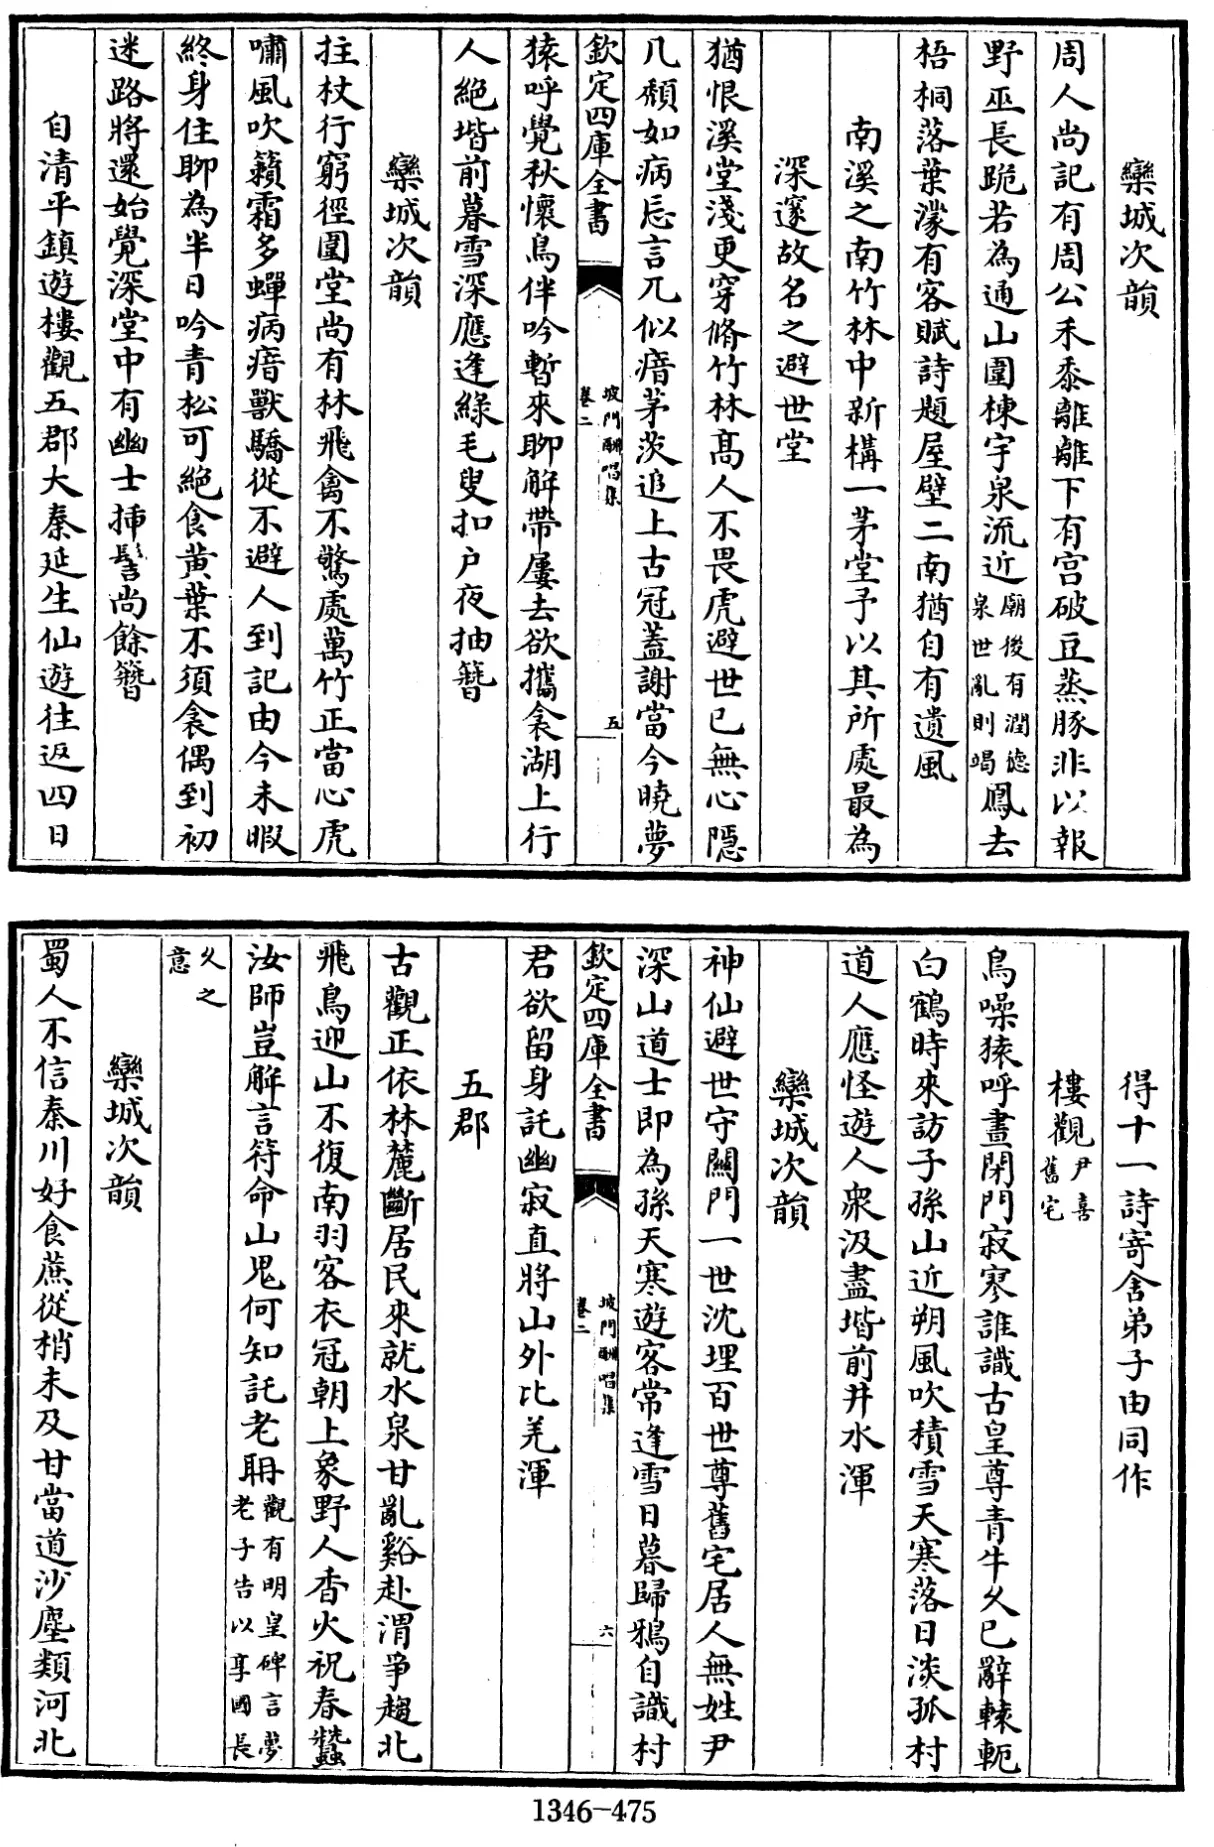 欒城次韻
周人尚記有周公禾黍離離下有宮破豆蒸豚非以報
野巫長跪若為通山圍棟宇泉流近廟後有潤德泉世亂則竭鳳去
梧桐落葉濛有客賦詩題屋壁二南猶自有遺風
南溪之南竹林中新構一茅堂予以其所處最為
深邃故名之避世堂
猶恨溪堂淺更穿脩竹林高人不畏虎避世已無心隱
几頹如病忘言兀似瘖茅茨追上古冠蓋謝當今曉夢
欽定四庫全書
坡門酬唱集
卷二
五
猿呼覺秋懷鳥伴吟暫來聊解帶屢去欲攜衾湖上行
人絕堦前暮雪深應逢綠毛叟扣户夜抽簪
欒城次韻
拄杖行窮徑圍堂尚有林飛禽不驚處萬竹正當心虎
嘯風吹籟霜多蟬病瘖獸驕從不避人到記由今未暇
終身住聊為半日吟青松可絕食黄葉不須衾偶到初
迷路將還始覺深堂中有幽士插髻尚餘簪
自清平鎮遊樓觀五郡大秦延生仙遊往返四日
得十一詩寄舍弟子由同作
樓觀尹喜舊宅
鳥噪猿呼晝閉門寂寥誰識古皇尊青牛久已辭轅軛
白鶴時來訪子孫山近朔風吹積雪天寒落日淡孤村
道人應怪遊人衆汲盡堦前井水渾
欒城次韻
神仙避世守關門一世沈埋百世尊舊宅居人無姓尹
深山道士即為孫天寒遊客常逢雪日暮歸鴉自識村
欽定四庫全書
坡門酬唱集
卷二
六
君欲留身託幽寂直將山外比羌渾
五郡
古觀正依林麓斷居民來就水泉甘亂谿赴渭爭趨北
飛鳥迎山不復南羽客衣冠朝上象野人香火祝春蠶
汝師豈解言符命山鬼何知託老聃觀有明皇碑言夢老子告以享國長
久之意
欒城次韻
蜀人不信秦川好食蔗從梢未及甘當道沙塵類河北
1346-475